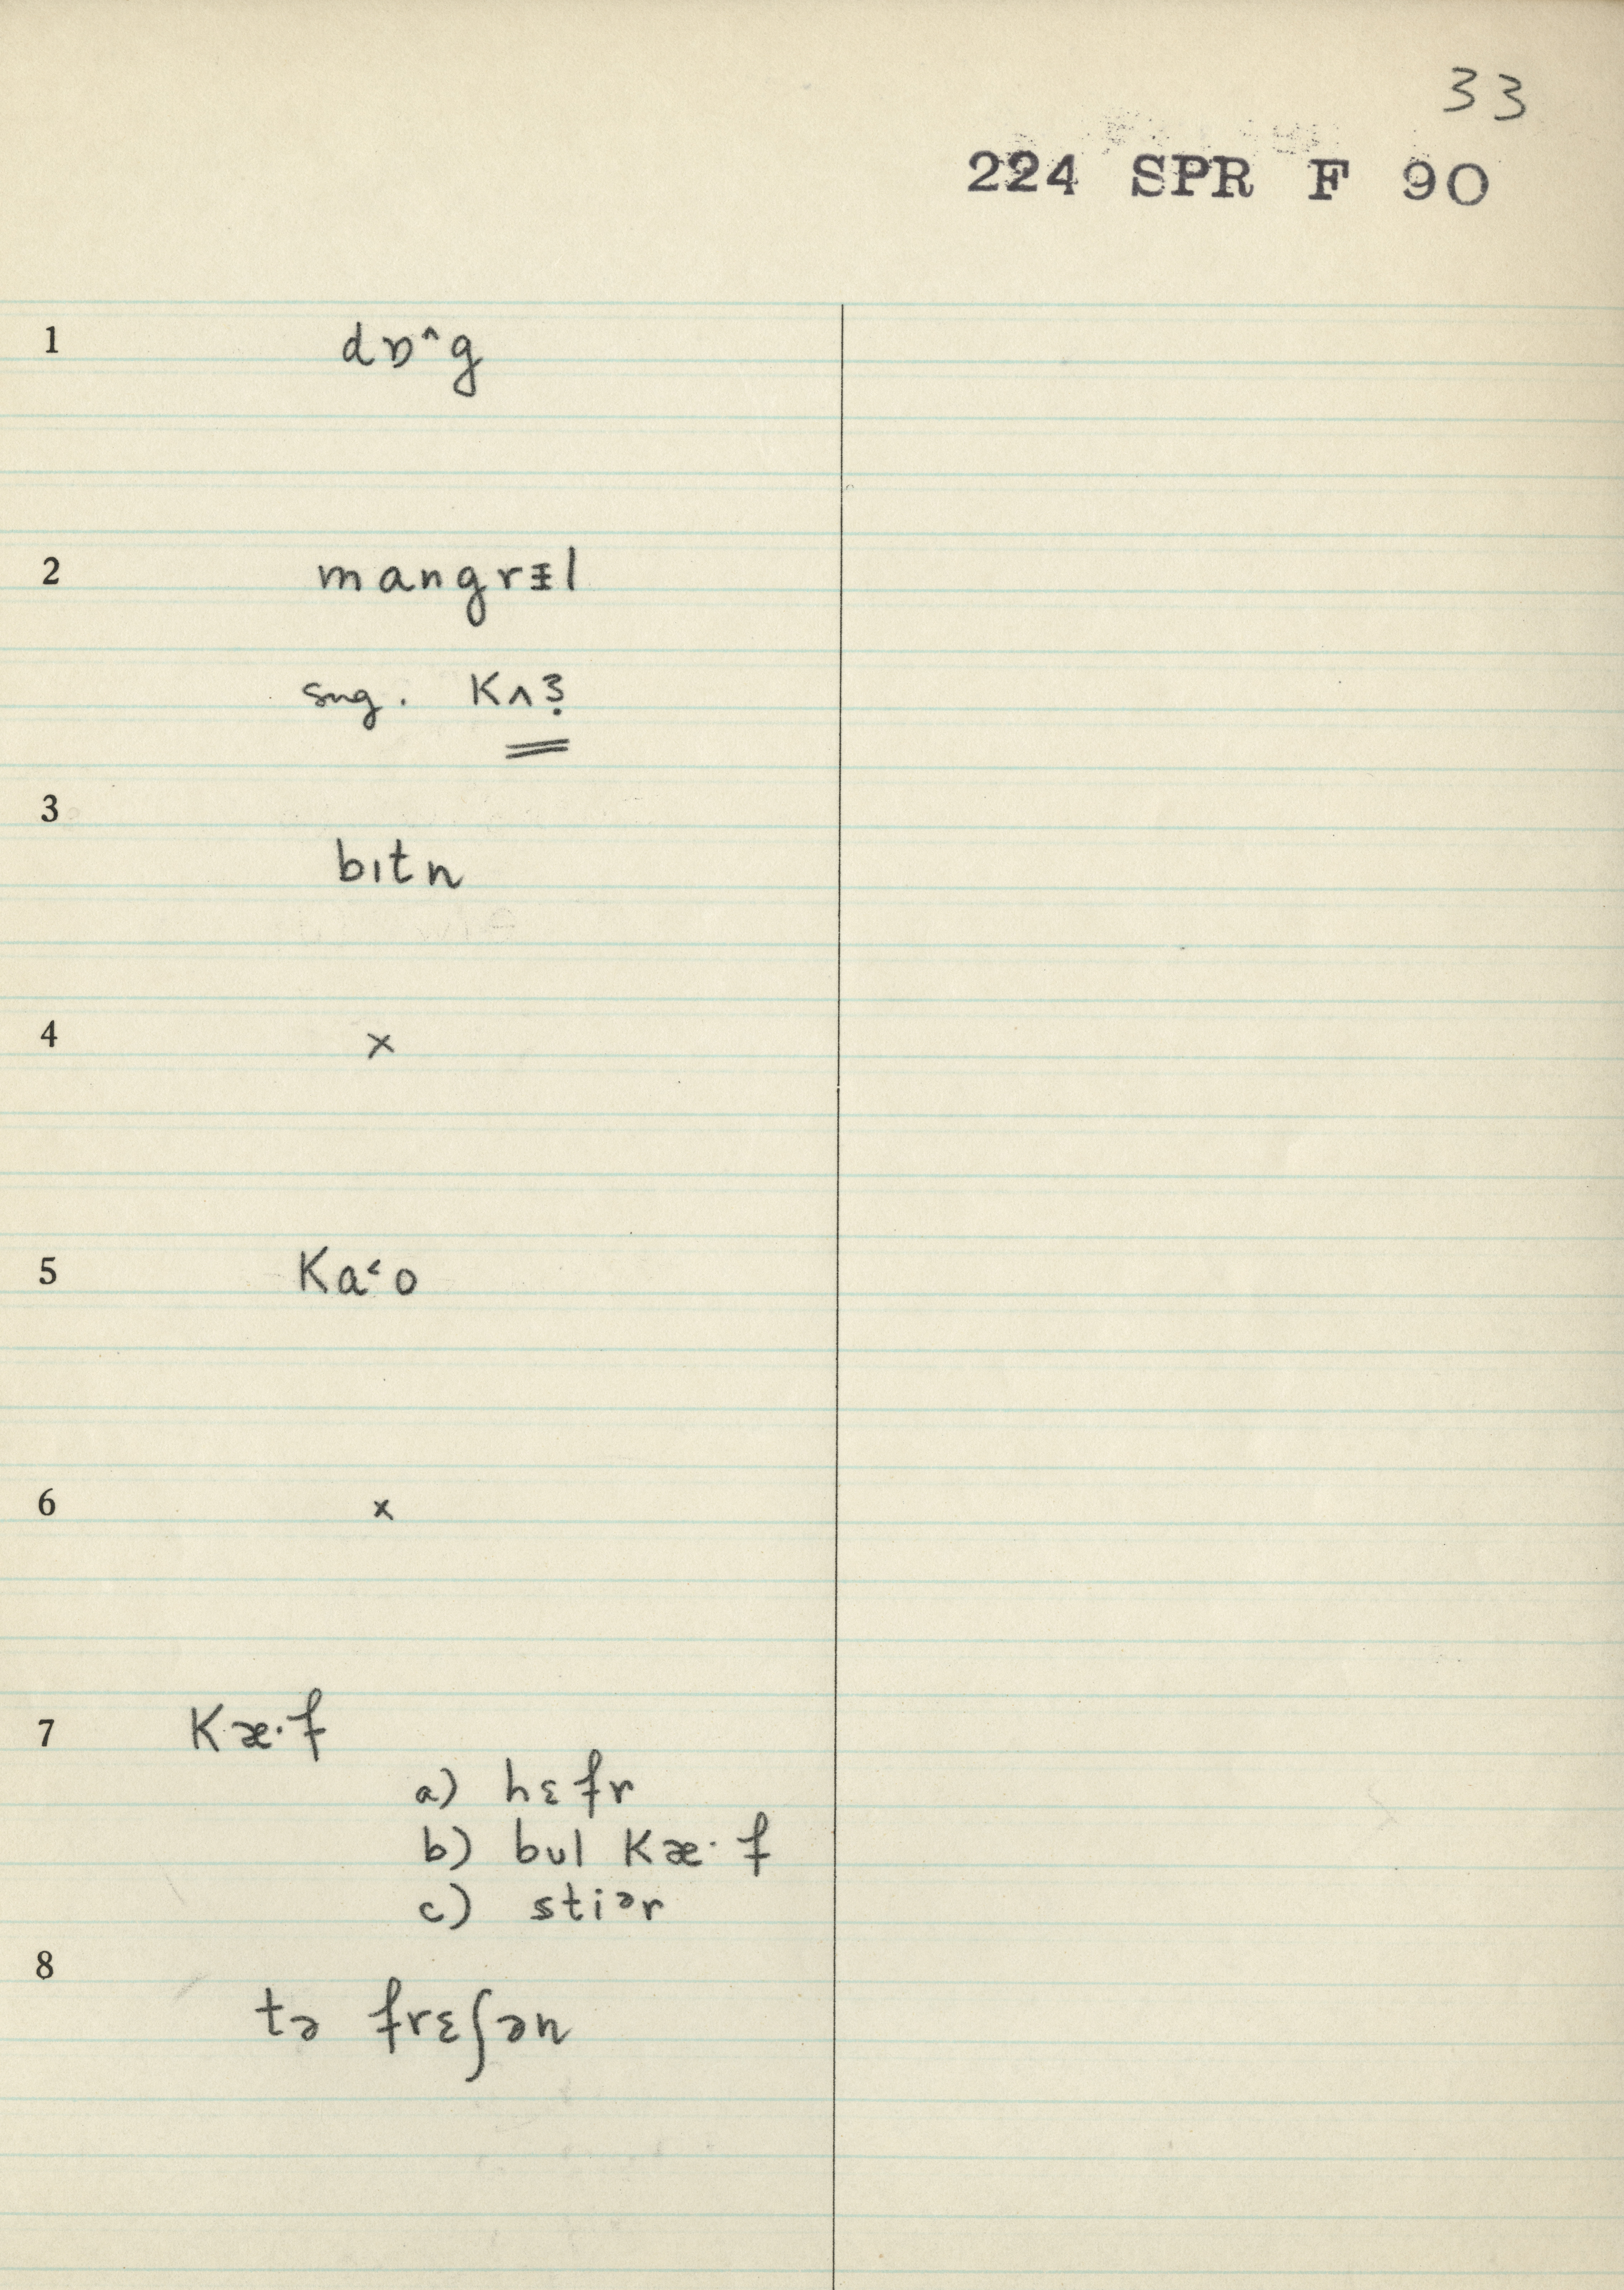 33
224 SPR F 90
1 dɒ^g
2 mangrɪl
sug. Kʌʒ
3 bɪtn
4 x
5 Ka˂o
6 x
7 Kæ·f
a) hɛfr
b) bul Kæ·f
c) stiər
8 tə frɛʃən